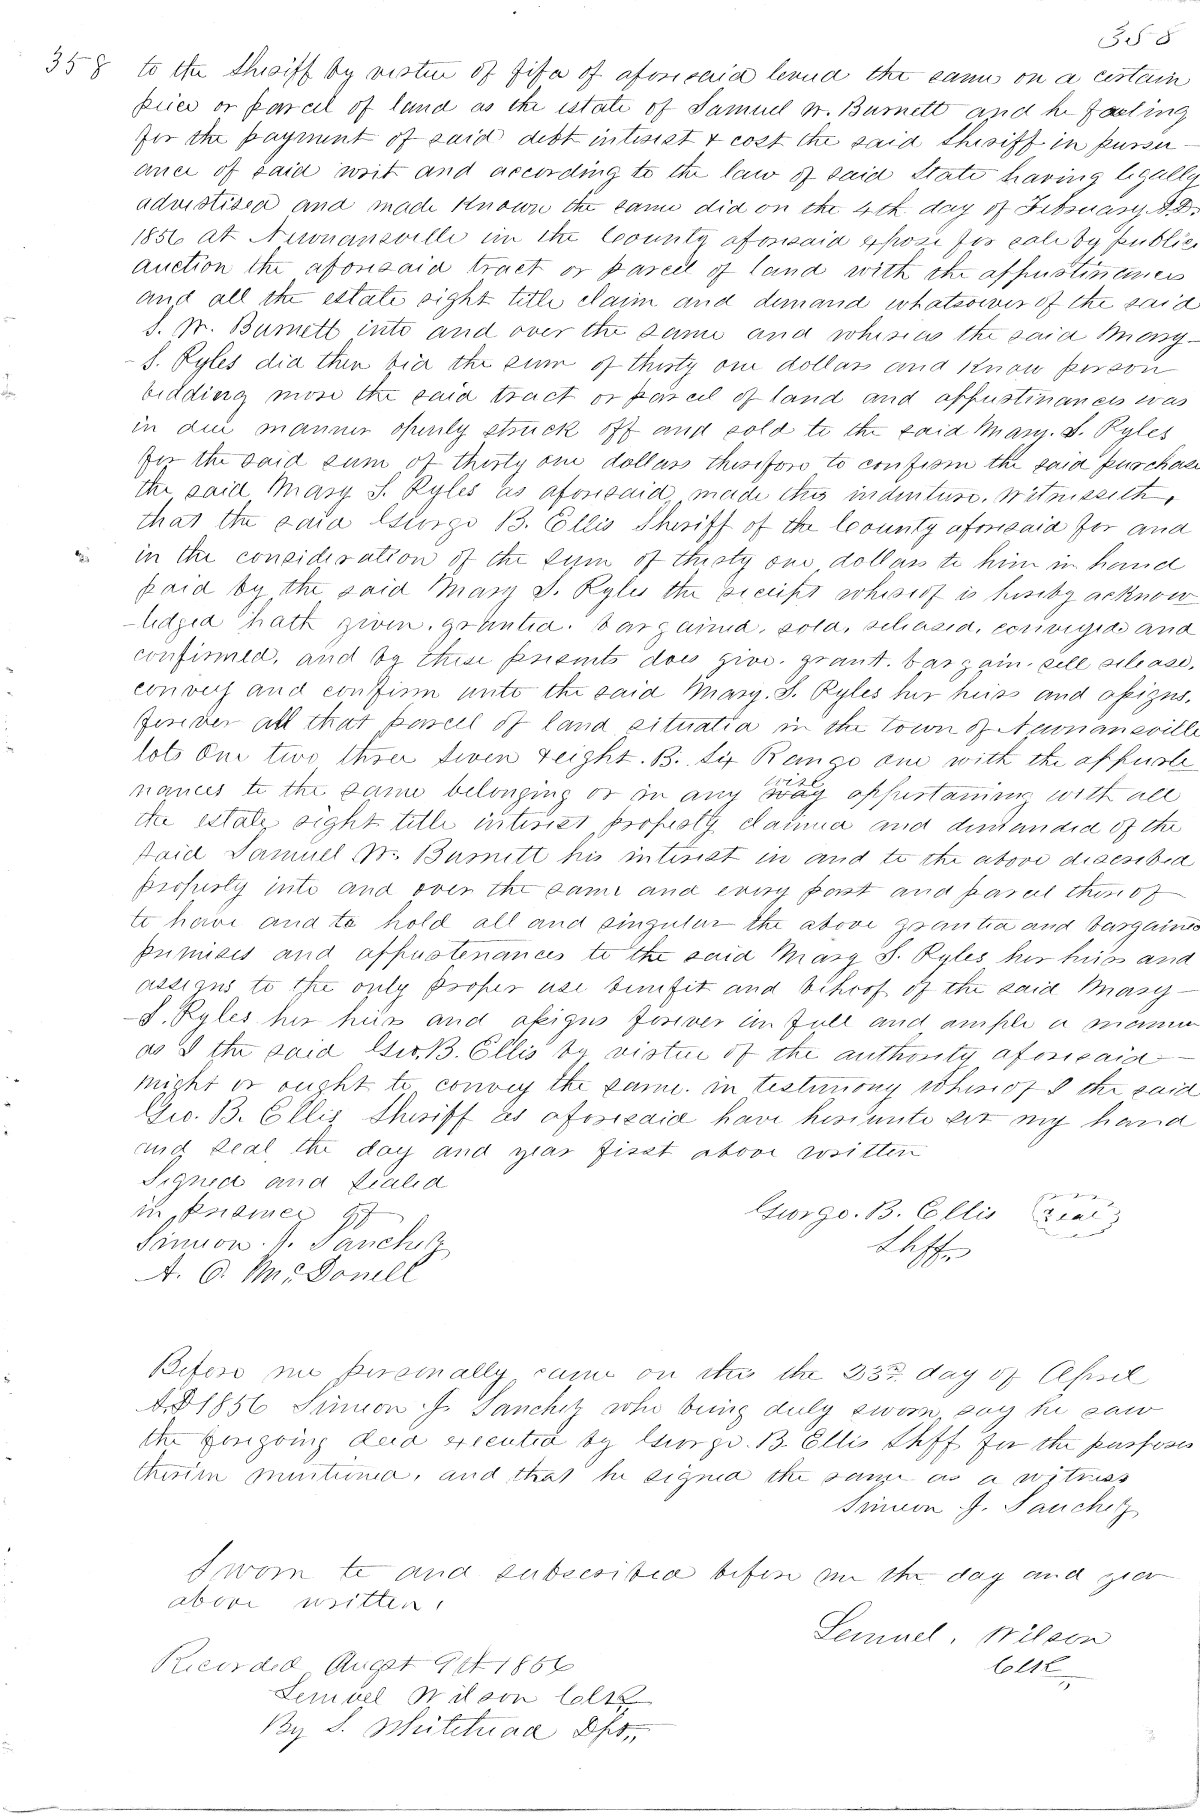 358
358 to the Sheriff by virtue of fifa of aforesaid levied the same on a certain
peice or parcel of land as the estate of Samuel W. Burnett and he failing
for the payment of said debt interest & cost the said Sheriff in pursu-
ance of said writ and according to the law of said State having legally
advertised and made Known the same did on the 4th day of February A.D.
1856 at Newnansville im the County aforesaid expose for sale by public
auction the aforesaid tract or parcel of land with the appurtinances
and all the estate right title claim and demand whatsoever of the said
S. W. Burnett into and over the same and whereas the said Mary-
-S. Ryles did then bid the sum of thirty one dollars and Know person
bidding more the said tract or parcel of land and appurtinances was
in due manner openly struck off and sold to the said Mary. S. Ryles
for the said sum of thirty one dollars therefore to confirm the said purchase
the said Mary S. Ryles as aforesaid made this indenture. Witnesseth,
that the said George B. Ellis Sheriff of the County aforesaid for and
in the consideration of the sum of thirty one dollars to him in hand
paid by the said Mary S. Ryles the receipt whereof is hereby acknow
-ledged hath given. granted. bargained. sold. released. conveyed and
confirmed. and by these presents does give. grant. bargain. sell release.
convey and confirm unto the said Mary. S. Ryles her heirs and assigns.
forever all that parcel of land situated in the town of Newnansville
lots One two three seven & eight. B. Six Range one with the appurte
nances to the same belonging or in any way wise appertaining with all
the estate right title interest property claimed and demanded of the
said Samuel W. Burnett his interest in and to the above described
property into and over the same and every part and parcel thereof
to have and to hold all and singular the above granted and bargained
premises and appurtenances to the said Mary S. Ryles her heirs and
assigns to the only proper use benefit and behoof of the said Mary-
-S. Ryles her heirs and assigns forever in full and ample a manner
as I the said Geo. B. Ellis by virtue of the authority aforesaid-
might or ought to convey the same. in testimony whereof I the said
Geo. B. Ellis Sheriff as aforesaid have hereunto set my hand
and seal the day and year first above written
Signed and Sealed
in presence of
George. B. Ellis (Seal)
Simeon. J. Sanchez
Shff.
A. C. McDonell
Before me personally came on this the 23rd day of April
A.D 1856 Simeon J. Sanchez who being duly sworn say he saw
the foregoing deed executed by George. B. Ellis Shff for the purposes
therein mentioned. and that he signed the same as a witness
Simeon J. Sanchez
Sworn to and subscribed before me the day and year
above written.
Lemuel. Wilson
Clk
Recorded Augst 9th 1856
Lemuel Wilson Clk
By S. Whitehead Dpt.